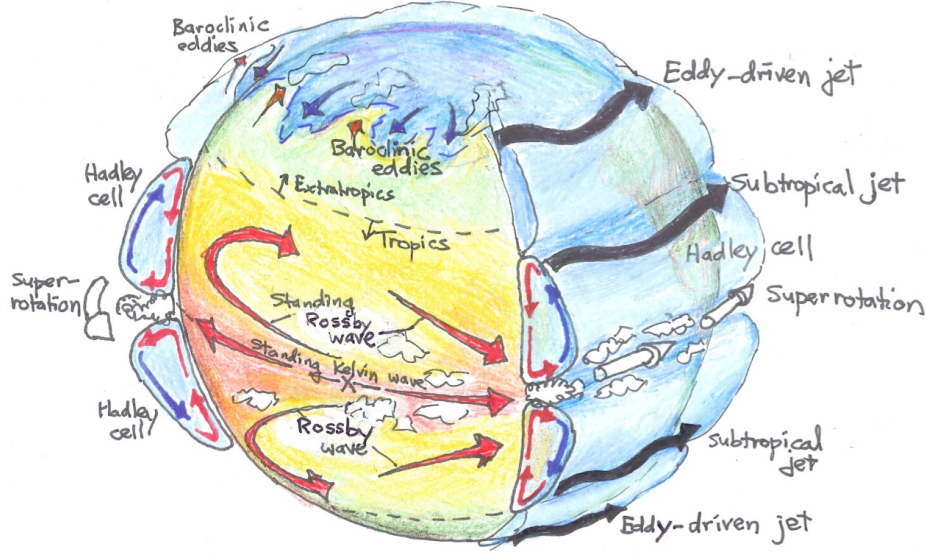 Baroclinic
eddies
Eddy-driven jet
Baroclinic
eddies
Hadley
cell
Extratropics
Subtropical jet
Tropics
Hadley cell
Super-
rotation
Standing
Rossby
wave
Superrotation
Standing Kelvin wave
X
Hadley
cell
Rossby
wave
Subtropical
jet
Eddy-driven jet